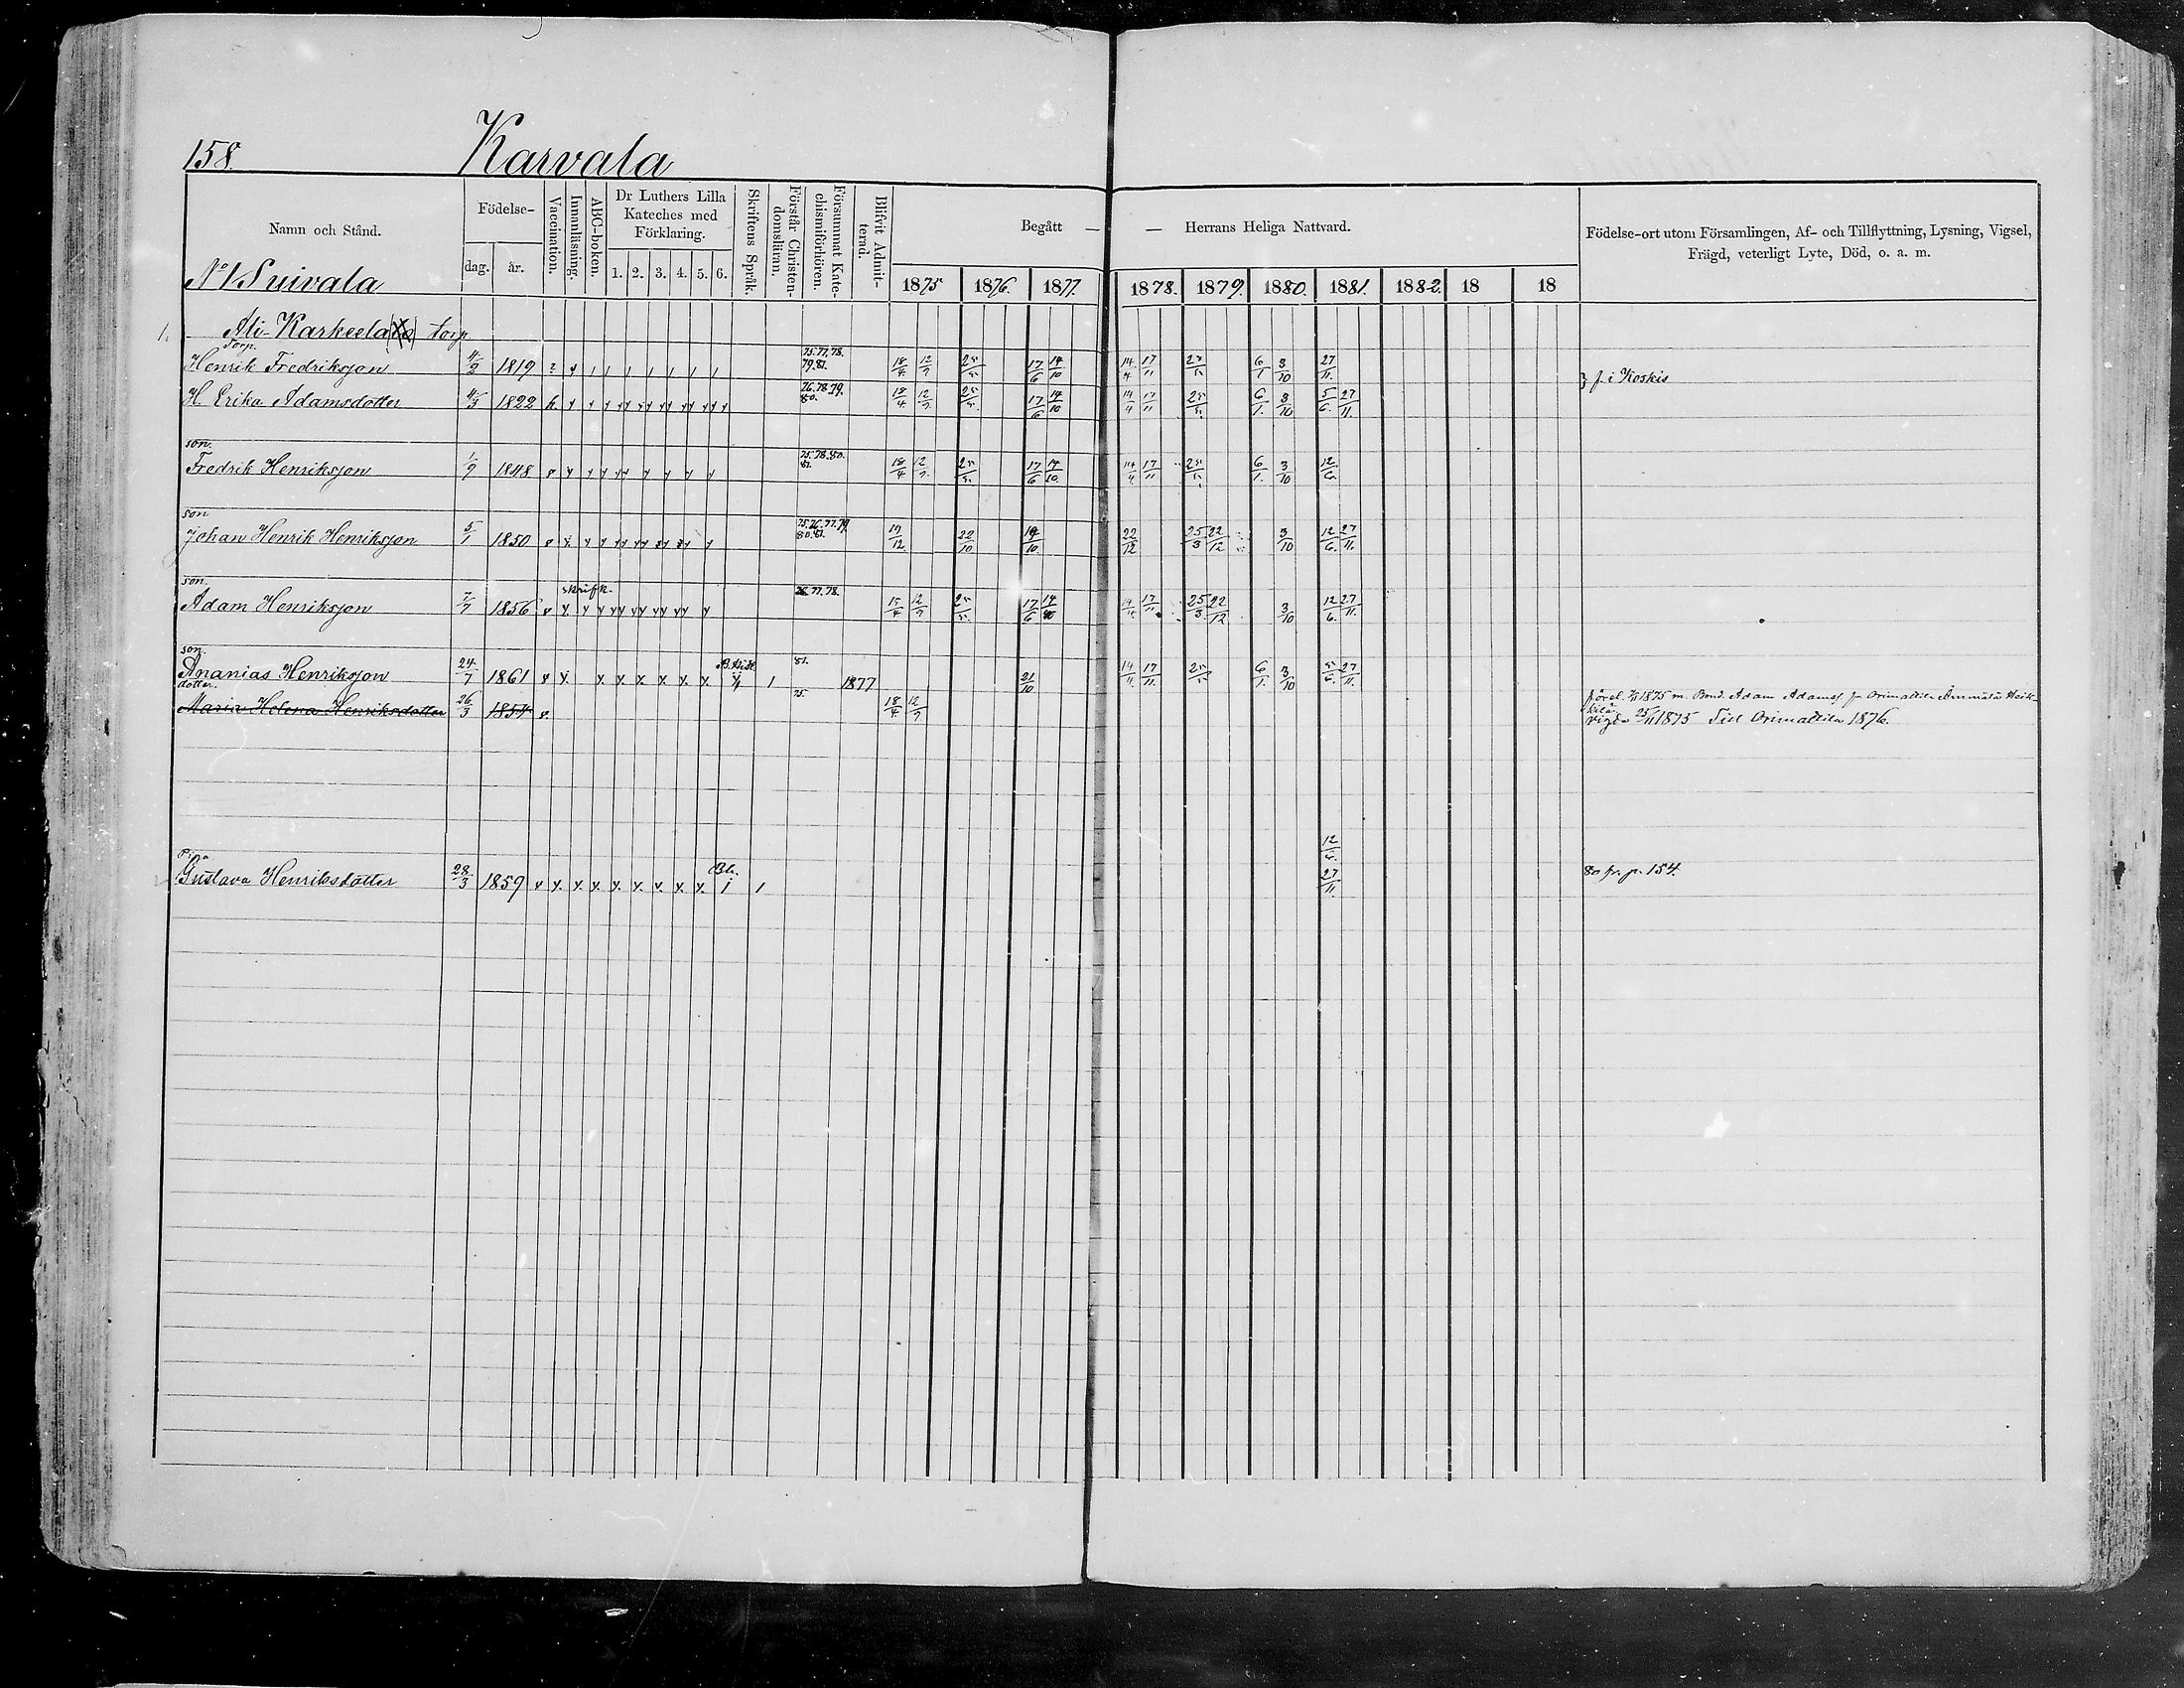 158.
Karvala
Namn och Stånd.
Födelse-
dag.
år.
Vaccination.
Innanläsning.
ABC-boken.
Dr Luthers Lilla
Kateches med
Förklaring.
1. 2. 3. 4. 5. 6.
Skriftens Språk.
Förstår Christen-
domsläran.
Försummat Kate-
chismiförhören.
Blifvit Admit-
terad.
Begått —
— Herrans Heliga Nattvard.
1875 1876. 1877. 1878. 1879. 1880. 1881. 1882. 18 18
Födelse-ort utom Församlingen, Af- och Tillflyttning, Lysning, Vigsel,
Frägd, veterligt Lyte, Död, o. a. m.
No 1 Suivala
1. Ali-Karkeela torp
Torp.
Henrik Fredriksson 4/2 1819 75. 77. 78. 79. 81. 18/4 12/9 25/5 17/6 14/10 14/4 17/11 25/5 6/1 3/10 27/11
H. Erika Adamsdotter 4/3 1822 76. 78. 79. 80. 18/4 12/9 25/5 17/6 14/10 14/4 17/11 25/5 6/1 3/10 5/6 27/11
} f. i Koskis
son.
Fredrik Henriksson 1/9 1848 75. 78. 80. 81. 18/4 12/9 25/5 17/6 14/10 14/4 17/11 25/5 6/1 3/10 12/6
son
Johan Henrik Henriksson 5/1 1850 75. 76. 77. 79. 80. 81. 19/12 22/10 14/10 22/12 25/3 22/12 3/10 12/6 27/11
son.
Adam Henriksson 7/7 1856 skrifk. 76. 77. 78. 12/9 25/5 17/6 14/10 14/4 17/11 25/3 22/12 3/10 12/6 27/11
son.
Ananias Henriksson 24/7 1861 81. 1877 21/10 14/11 17/11 25/5 6/1 3/10 5/6 27/11
dotter.
Maria Helena Henriksdotter 26/3 1854 75. 18/4 12/9
1875 m. Bond. Adam Adamss fr Orimattila
vigde 25/11 1875 Till Orimattila 1876.
Pig.
Gustava Henriksdotter 28/3 1859 Bb. 12/6 27/11
80 fr. p. 154.